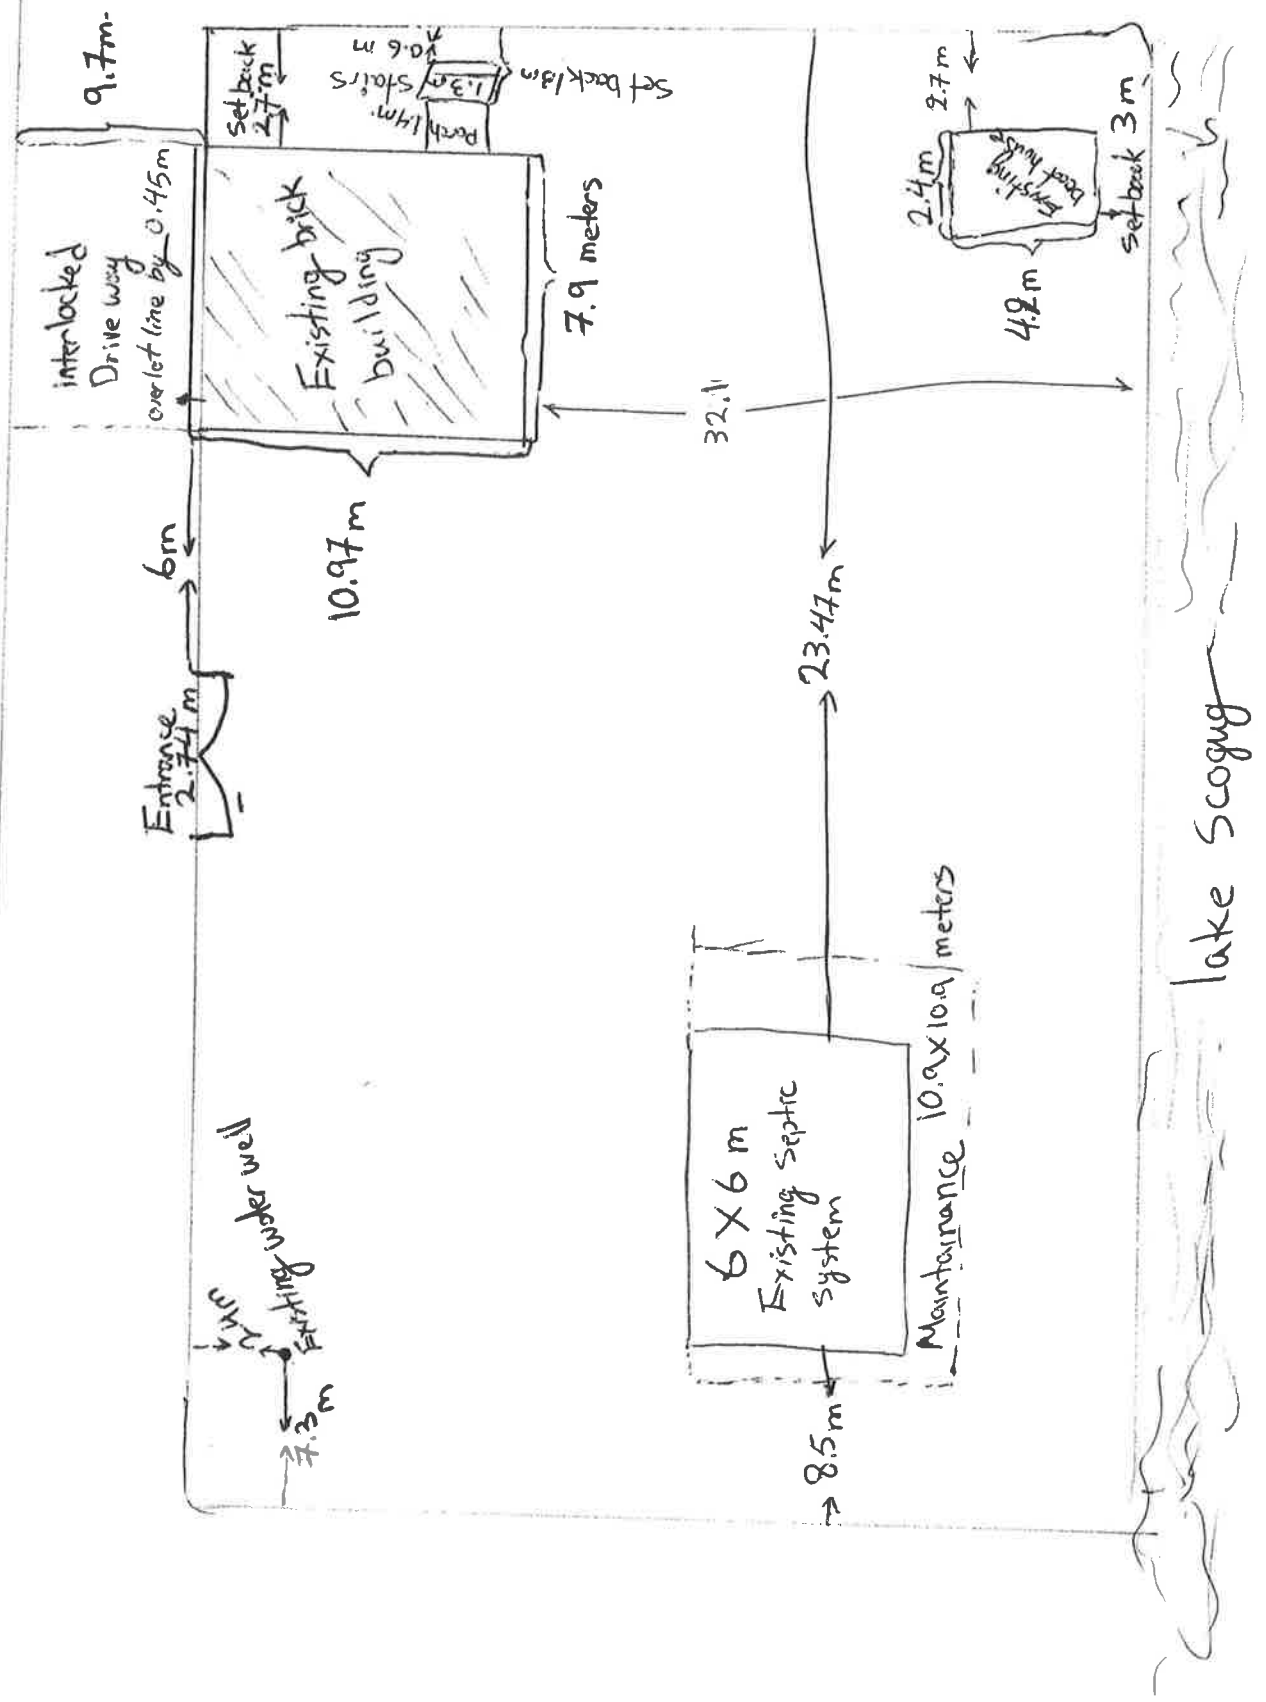 9.7m.
interlocked
Drive way
over lot line by 0.45m
Set back
2.7m
0.6 m
1.3m
stairs
1.4m.
Porch
Set back 1.3m
Existing brick
building
7.9 meters
10.97m
6m
Entrance
2.74 m
32.1
23.47m
2.7m
2.4m
Existing
boat house
4.2m
Set back 3m
Existing water well
2.4m
7.3m
6 X 6 m
Existing Septic
System
Maintainance 10.9x10.9 meters
8.5m
lake Scogug